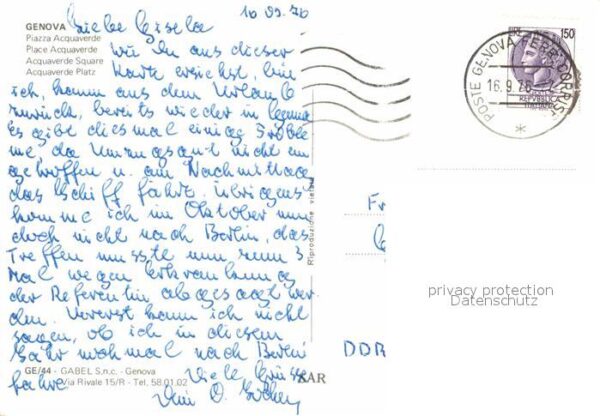 16.09.76
Liebe Gisela
GENOVA
Piazza Acquaverde
Place Acquaverde
Acquaverde Square
Acquaverde Platz
wie Du aus dieser
Karte ersiehst, bin
ich, kaum aus dem Urlaub
zurück, bereits wieder in Genua
Es gibt diesmal einige Proble
me, da Umzugsgut nicht ein
getroffen u. am Nachmittag
das Schiff fährt. Übrigens
komme ich im Oktober nun
doch nicht nach Berlin, das
Treffen musste nun zum 3.
Mal wegen Erkrankung
der Referentin abgesagt wer
den. Vorerst kann ich nicht
sagen, ob ich in diesem
Jahr nochmal nach Berlin
fahre.
Viele Grüsse
GE/44 - GABEL S.n.c. - Genova
Via Rivale 15/R - Tel. 58.01.02
KAR
Riproduzione vietata
150
POSTE GENOVA FERR.
16.9.76
REPUBBLICA
ITALIANA
Fr
DDR
privacy protection
Datenschutz